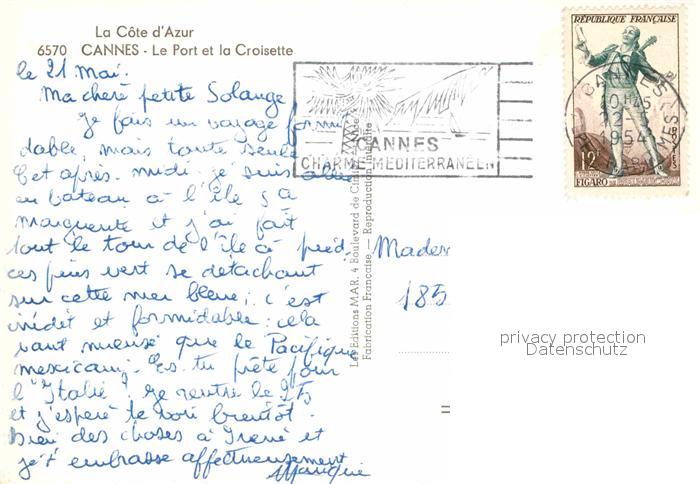 La Côte d'Azur
6570 CANNES - Le Port et la Croisette
le 21 Mai.
Ma chere petite Solange
Je fais un voyage formi
dable, mais toute seule
Cet après-midi je suis allée
en bateau à l'île Ste
Marguerite et j'ai fait
tout le tour de l'île à pied.
ces pins vert se détachant
sur cette mer bleue; c'est
inédit et formidable: cela
vaut mieux que le Pacifique
mexicain. Es-tu prête pour
l'"Italie"? Je rentre le 25
et j'espère te voir bientôt.
Bien des choses à Irène et
je t'embrasse affectueusement
CANNES
CHARME MÉDITERRANÉEN
RÉPUBLIQUE FRANÇAISE
CANNES
1954
12F
POSTES
FIGARO
Les Éditions MAR, 4 Boulevard de
Fabrication Française — Reproduction Interdite
Mades
185
privacy protection
Datenschutz